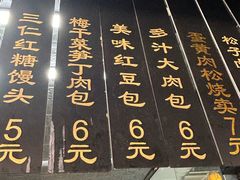 三仁红糖馒头
5元
梅干菜笋丁肉包
6元
美味红豆包
6元
多汁大肉包
6元
蛋黄肉松烧卖
7元
松子